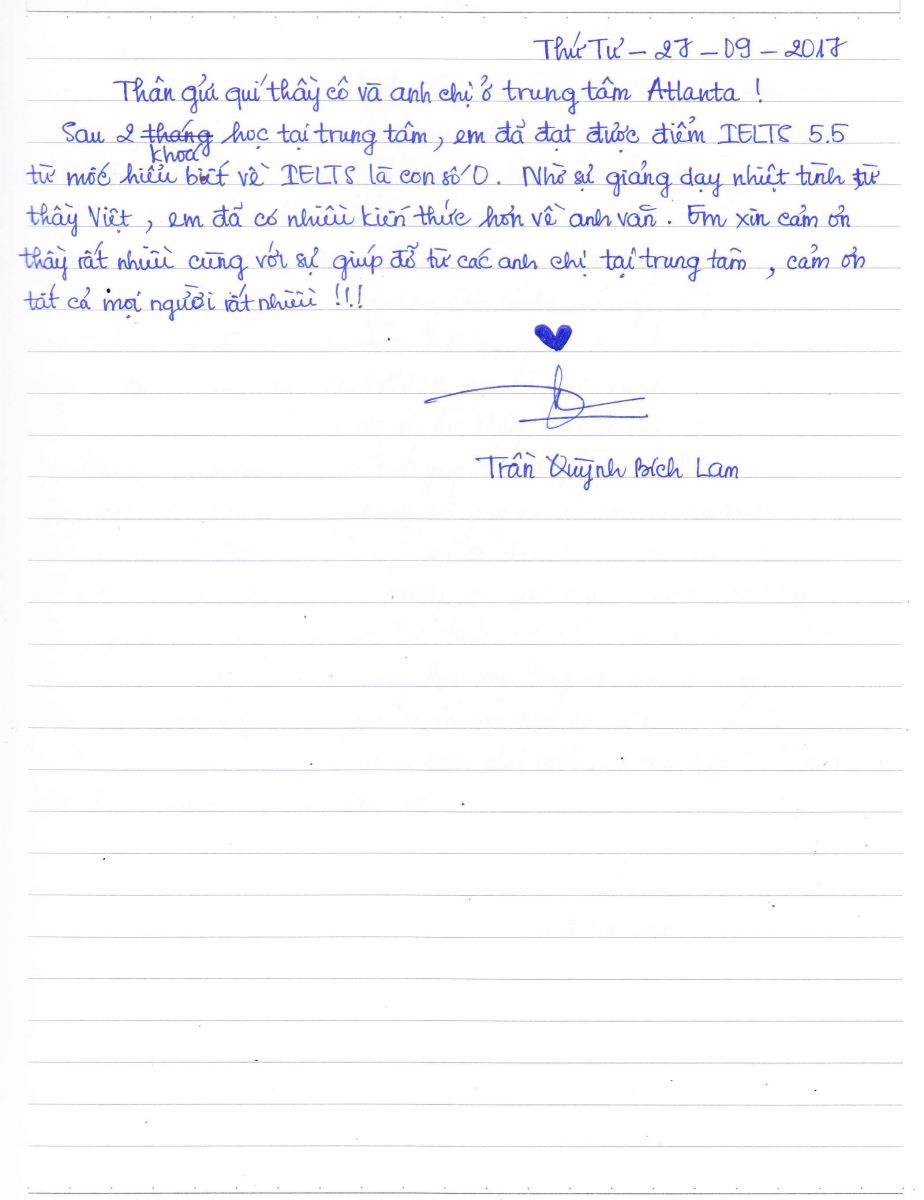 Thứ Tư – 27 – 09 – 2017
Thân gửi quí thầy cô và anh chị ở trung tâm Atlanta !
Sau 2 ~~tháng~~ khoá học tại trung tâm, em đã đạt được điểm IELTS 5.5
từ mốc hiểu biết về IELTS là con số 0. Nhờ sự giảng dạy nhiệt tình từ
thầy Việt, em đã có nhiều kiến thức hơn về anh văn. Em xin cảm ơn
thầy rất nhiềuu cùng với sự giúp đỡ từ các anh chị tại trung tâm, cảm ơn
tất cả mọi người rất nhiềuu !!!
Trần Quỳnh Bích Lam